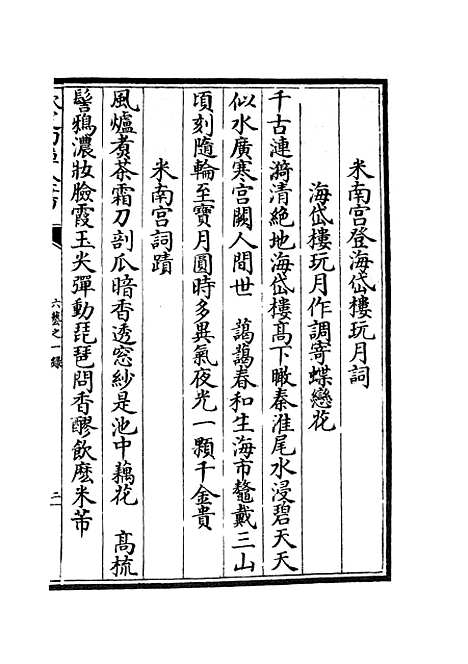 米南宫登海岱樓玩月詞
海岱樓玩月作調寄蝶戀花
千古漣漪清絶地海岱樓髙下瞰秦淮尾水浸碧天天
似水廣寒宫闕人間世　藹藹春和生海市鼇戴三山
頃刻隨輪至寶月圓時多異氣夜光一顆千金貴
米南宫詞蹟
風爐煑茶霜刀剖瓜暗香透窓紗是池中藕花　髙梳
髻鴉濃妝臉霞玉尖彈動琵琶問香醪飲麽米芾
六藝之一録
二